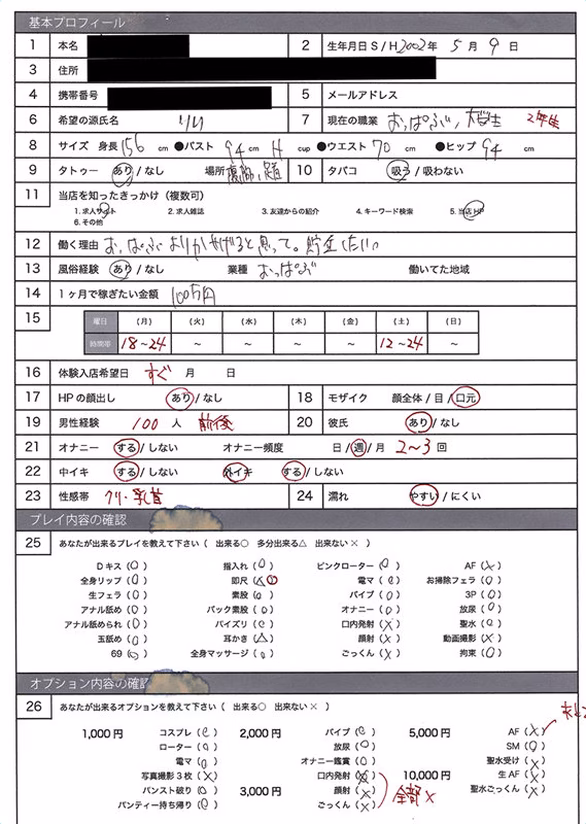 基本プロフィール
1 本名 2 生年月日 S / H 2002年 5月 9日
3 住所
4 携帯番号 5 メールアドレス
6 希望の源氏名 りり 7 現在の職業 おっぱぶ、大学生 2年生
8 サイズ 身長 156 cm ●バスト 94 cm H cup ●ウエスト 70 cm ●ヒップ 94 cm
9 タトゥー あり / なし 場所 10 タバコ 吸う / 吸わない
11 当店を知ったきっかけ（複数可）
1. 求人サイト 2. 求人雑誌 3. 友達からの紹介 4. キーワード検索 5. 当店HP
6. その他
12 働く理由 おっぱぶよりかせげると思って。貯金したい
13 風俗経験 あり / なし 業種 おっぱぶ 働いてた地域
14 1ヶ月で稼ぎたい金額 100万円
15 曜日 （月） （火） （水） （木） （金） （土） （日）
時間帯 18~24 ~ ~ ~ ~ 12~24 ~
16 体験入店希望日 すぐ 月 日
17 HPの顔出し あり / なし 18 モザイク 顔全体 / 目 / 口元
19 男性経験 100 人 前後 20 彼氏 あり / なし
21 オナニー する / しない オナニー頻度 日 / 週 / 月 2~3 回
22 中イキ する / しない 外イキ する / しない
23 性感帯 クリ・乳首 24 濡れ やすい / にくい
プレイ内容の確認
25 あなたが出来るプレイを教えて下さい（ 出来る○ 多分出来る△ 出来ない× ）
Dキス (○) 指入れ (○) ピンクローター (○) AF (×)
全身リップ (○) 即尺 (△○) 電マ (○) お掃除フェラ (○)
生フェラ (○) 素股 (○) バイブ (○) 3P (○)
アナル舐め (○) バック素股 (○) オナニー (○) 放尿 (○)
アナル舐められ (○) パイズリ (○) 口内発射 (×) 聖水 (○)
玉舐め (○) 耳かき (△) 顔射 (×) 動画撮影 (×)
69 (○) 全身マッサージ (○) ごっくん (×) 拘束 (○)
オプション内容の確認
26 あなたが出来るオプションを教えて下さい（ 出来る○ 出来ない× ）
1,000円 コスプレ (○) 2,000円 バイブ (○) 5,000円 AF (×)
ローター (○) 放尿 (○) SM (○)
電マ (○) オナニー鑑賞 (○) 聖水受け (×)
写真撮影3枚 (×) 口内発射 (×) 10,000円 生AF (×)
パンスト破り (○) 3,000円 顔射 (×) 全部× 聖水ごっくん (×)
パンティー持ち帰り (○) ごっくん (×)